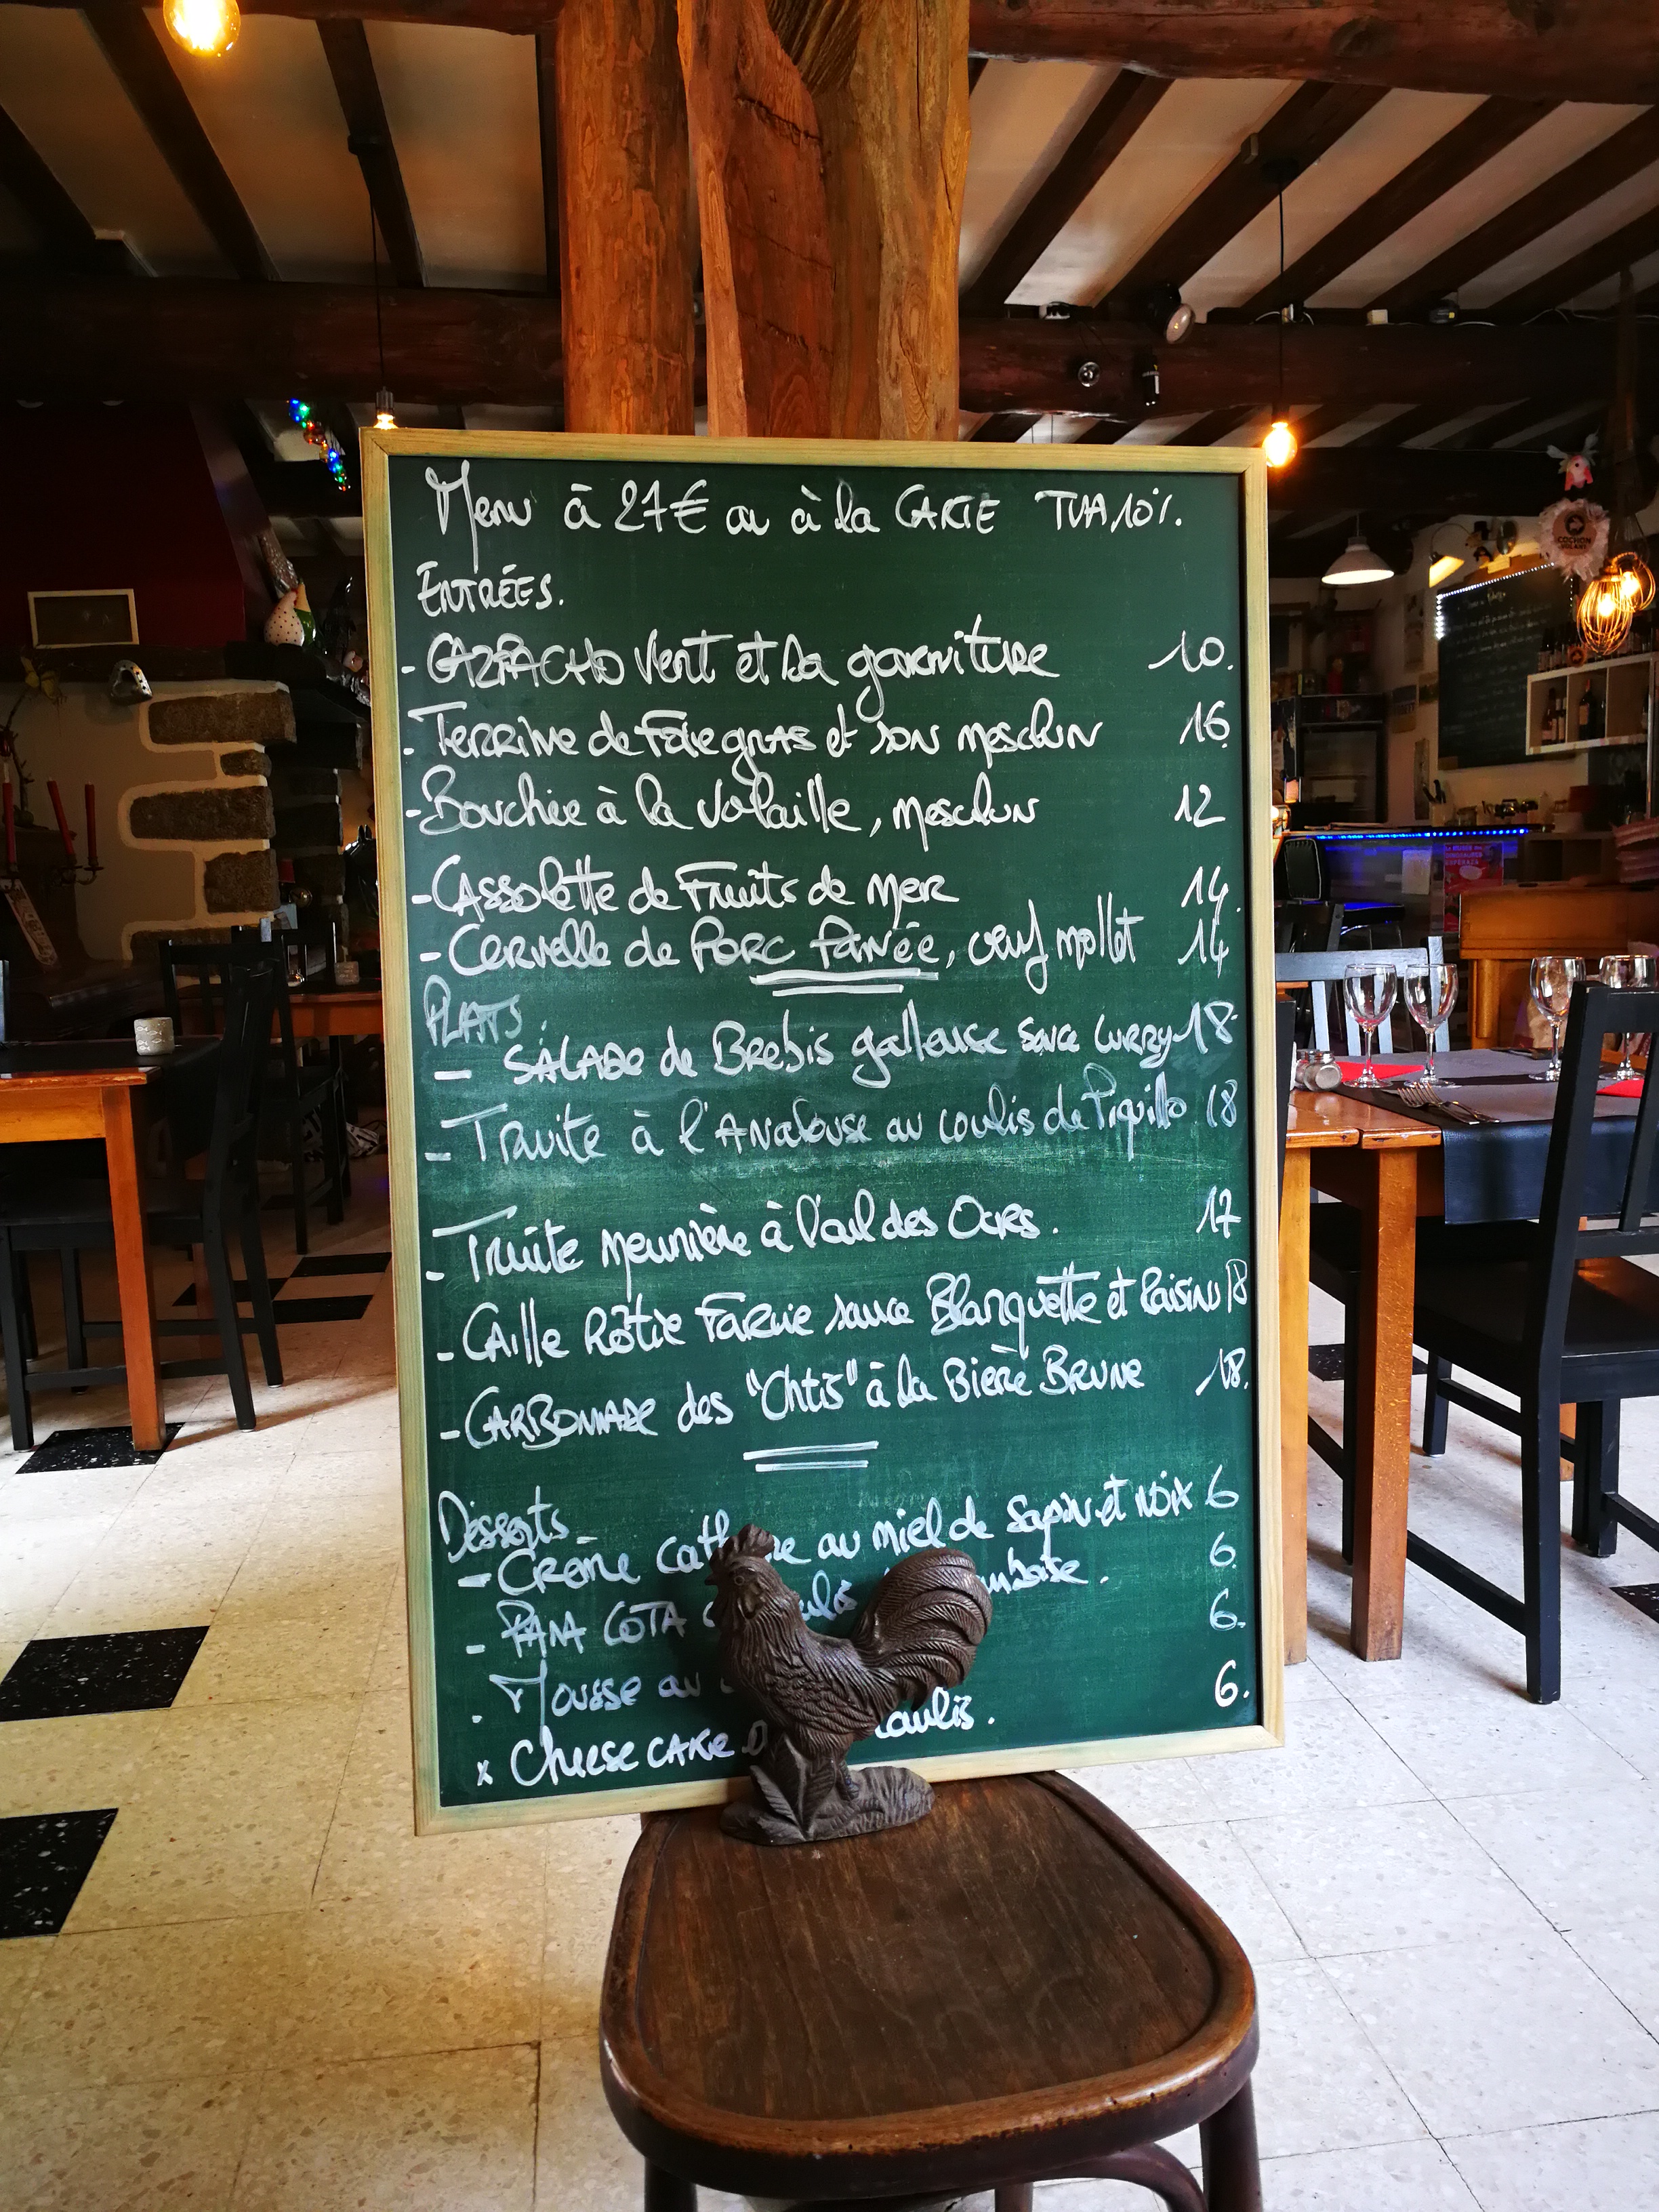 Menu à 27€ ou à la CARTE TVA 10%.
ENTRÉES.
- GAZPACHO Vert et sa garniture 10.
- Terrine de Foie gras et son mesclun 16
- Bouchée à la Volaille, mesclun 12
- CAssolette de Fruits de Mer 14.
- Cervelle de Porc Panée, œuf mollet 14
PLATS
- SALADE de Brebis galleuse sauce Curry 18
- Truite à l'Andalouse au coulis de Piquillo 18
- Truite Meunière à l'ail des Ours. 17
- Caille Rôtie Farcie sauce Blanquette et Raisins 18
- CARBONNADE des "Chtis" à la Bière Brune 18.
Desserts
- Crème au miel de Sapin et NOIX 6
- PANA COTA 6.
. Mousse au 6.
x Cheese CAKE coulis. 6.
COCHON VOLANT